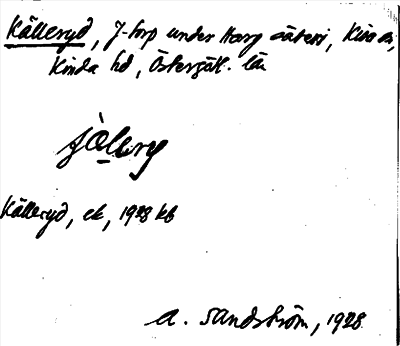 Källeryd, J-torp under Harg säteri, Kisa sn,
Kinda hd, Östergötl. län
Källeryd, ek, 1928 kb
A. Sandström, 1928